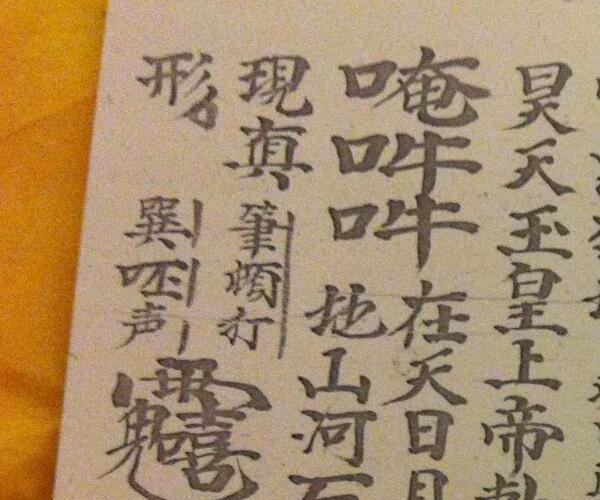 昊天玉皇上帝
唵吽吽
在天日月
地山河石
現真
筆頓打
形
巽呸声